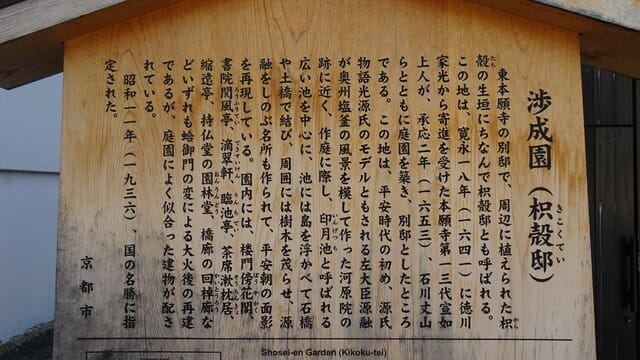 渉成園（枳殻邸）
きこくてい
東本願寺の別邸で、周辺に植えられた枳
殻の生垣にちなんで枳殻邸とも呼ばれる。
この地は、寛永一八年（一六四一）に徳川
家光から寄進を受けた本願寺第一三代宣如
上人が、承応二年（一六五三）、石川丈山
らとともに庭園を築き、別邸としたところ
である。この地は、平安時代の初め、源氏
物語光源氏のモデルともされる左大臣源融
が奥州塩釜の風景を模して作った河原院の
跡に近く、作庭に際し、印月池と呼ばれる
広い池を中心に、池には島を浮かべて石橋
や土橋で結び、周囲には樹木を茂らせ、源
融をしのぶ名所も作られて、平安朝の面影
を再現している。園内には、楼門傍花閣、
書院閬風亭、滴翠軒、臨池亭、茶席漱枕居、
縮遠亭、持仏堂の園林堂、橋廊の回棹廊な
どいずれも蛤御門の変による大火後の再建
であるが、庭園によく似合った建物が配さ
れている。
昭和一一年（一九三六）、国の名勝に指
定された。
京都市
Shosei-en Garden (Kikoku-tei)